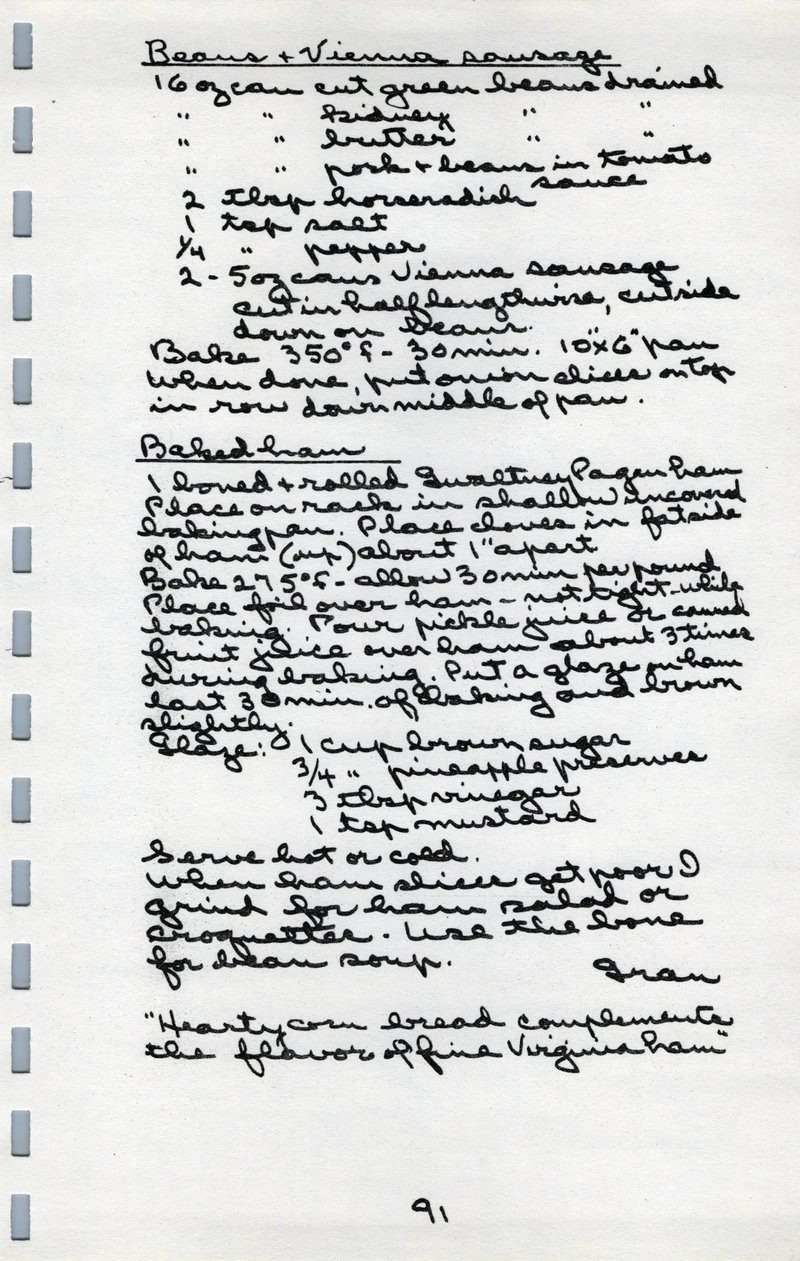 Beans + Vienna sausage
16 oz can cut green beans drained
" " kidney " "
" " butter " "
" " pork + beans in tomato
sauce
2 tbsp horseradish
1 tsp salt
1/4 " pepper
2 - 5 oz cans Vienna sausage
cut in half lengthwise, cut side
down on beans.
Bake 350°F - 30 min. 10"x6" pan
When done, put onion slices on top
in row down middle of pan.
Baked ham
1 boned + rolled Gwaltney Pagen ham
Place on rack in shallow uncovered
baking pan. Place cloves in fat side
of ham (up) about 1" apart
Bake 275°F - allow 30 min per pound
Place foil over ham - not tight - while
baking. Pour pickle juice or canned
fruit juice over ham about 3 times
during baking. Put a glaze on ham
last 30 min. of baking and brown
slightly.
Glaze: 1 cup brown sugar
3/4 " pineapple preserves
3 tbsp vinegar
1 tsp mustard
Serve hot or cold.
When ham slices get poor I
grind for ham salad or
croquettes. Use the bone
for bean soup.
Gran
"Hearty corn bread complements
the flavor of fine Virginia ham"
91